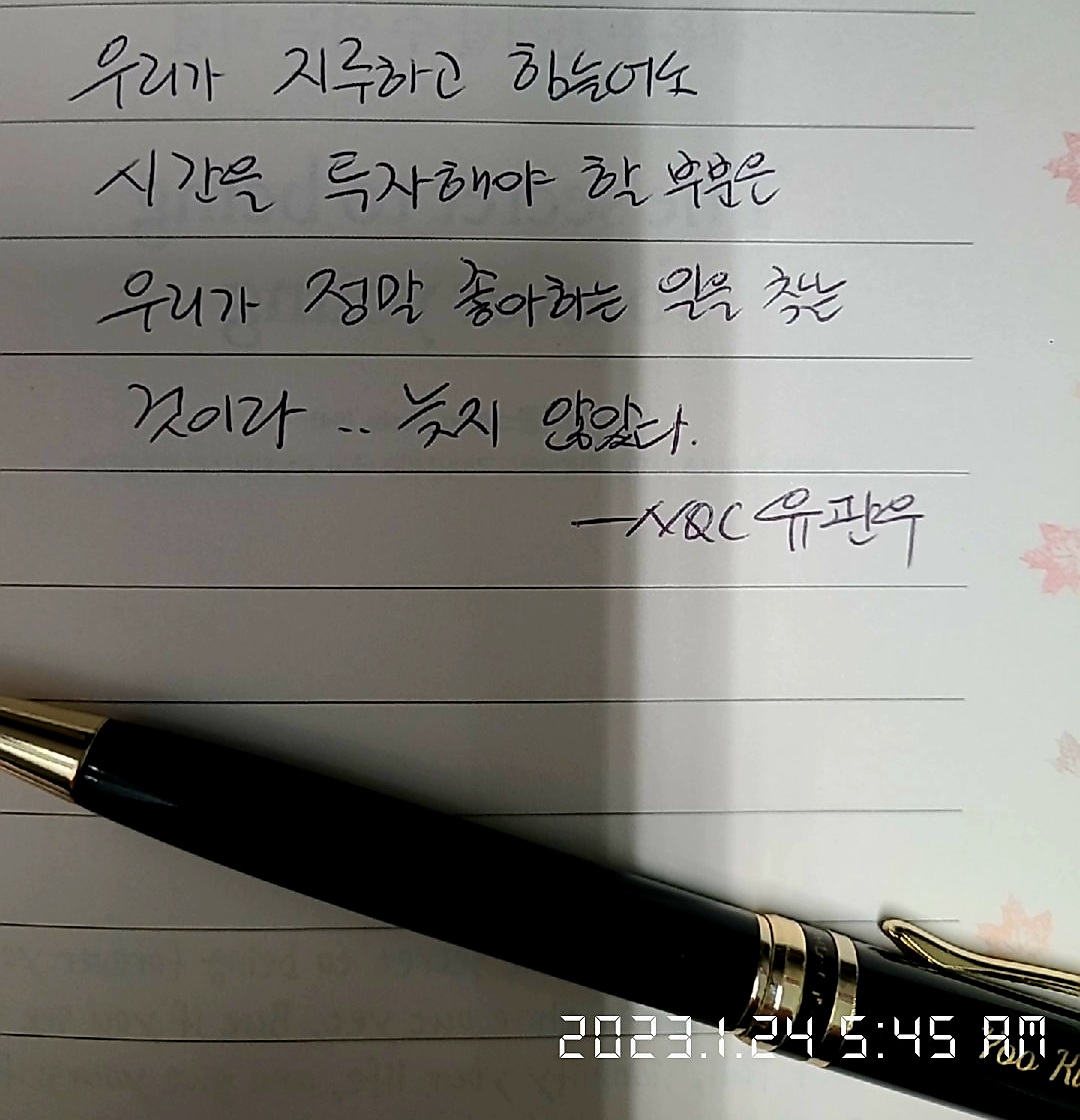 우리가 지루하고 힘들어도
시간을 투자해야 할 부분은
우리가 정말 좋아하는 일을 찾는
것이라 .. 늦지 않았다.
유관우
2023.1.24 5:45 AM
Yoo